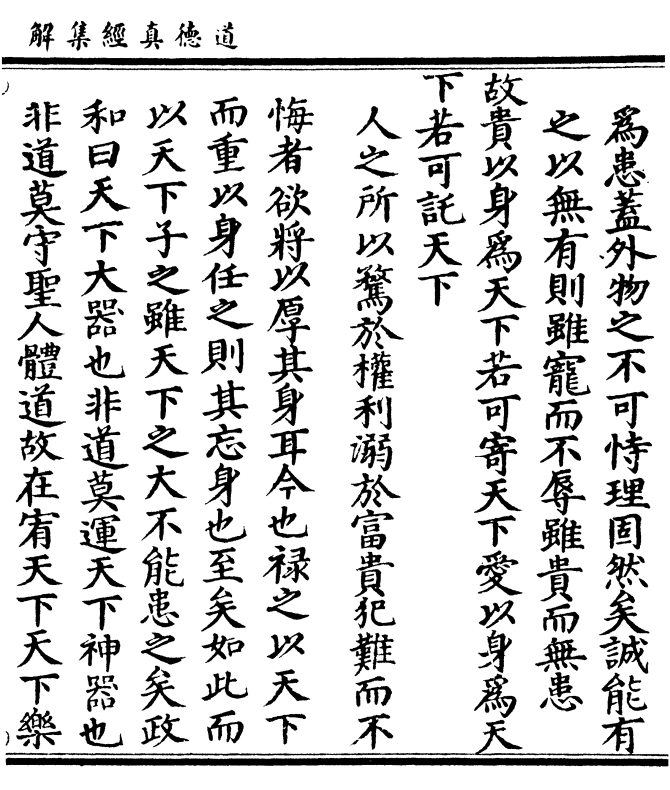 道德真經集解
爲患蓋外物之不可恃理固然矣誠能有
之以無有則雖寵而不辱雖貴而無患
故貴以身爲天下若可寄天下愛以身爲天
下若可託天下
人之所以騖於權利溺於富貴犯難而不
悔者欲將以厚其身耳今也禄之以天下
而重以身任之則其忘身也至矣如此而
以天下子之雖天下之大不能患之矣政
和曰天下大器也非道莫運天下神器也
非道莫守聖人體道故在宥天下天下樂